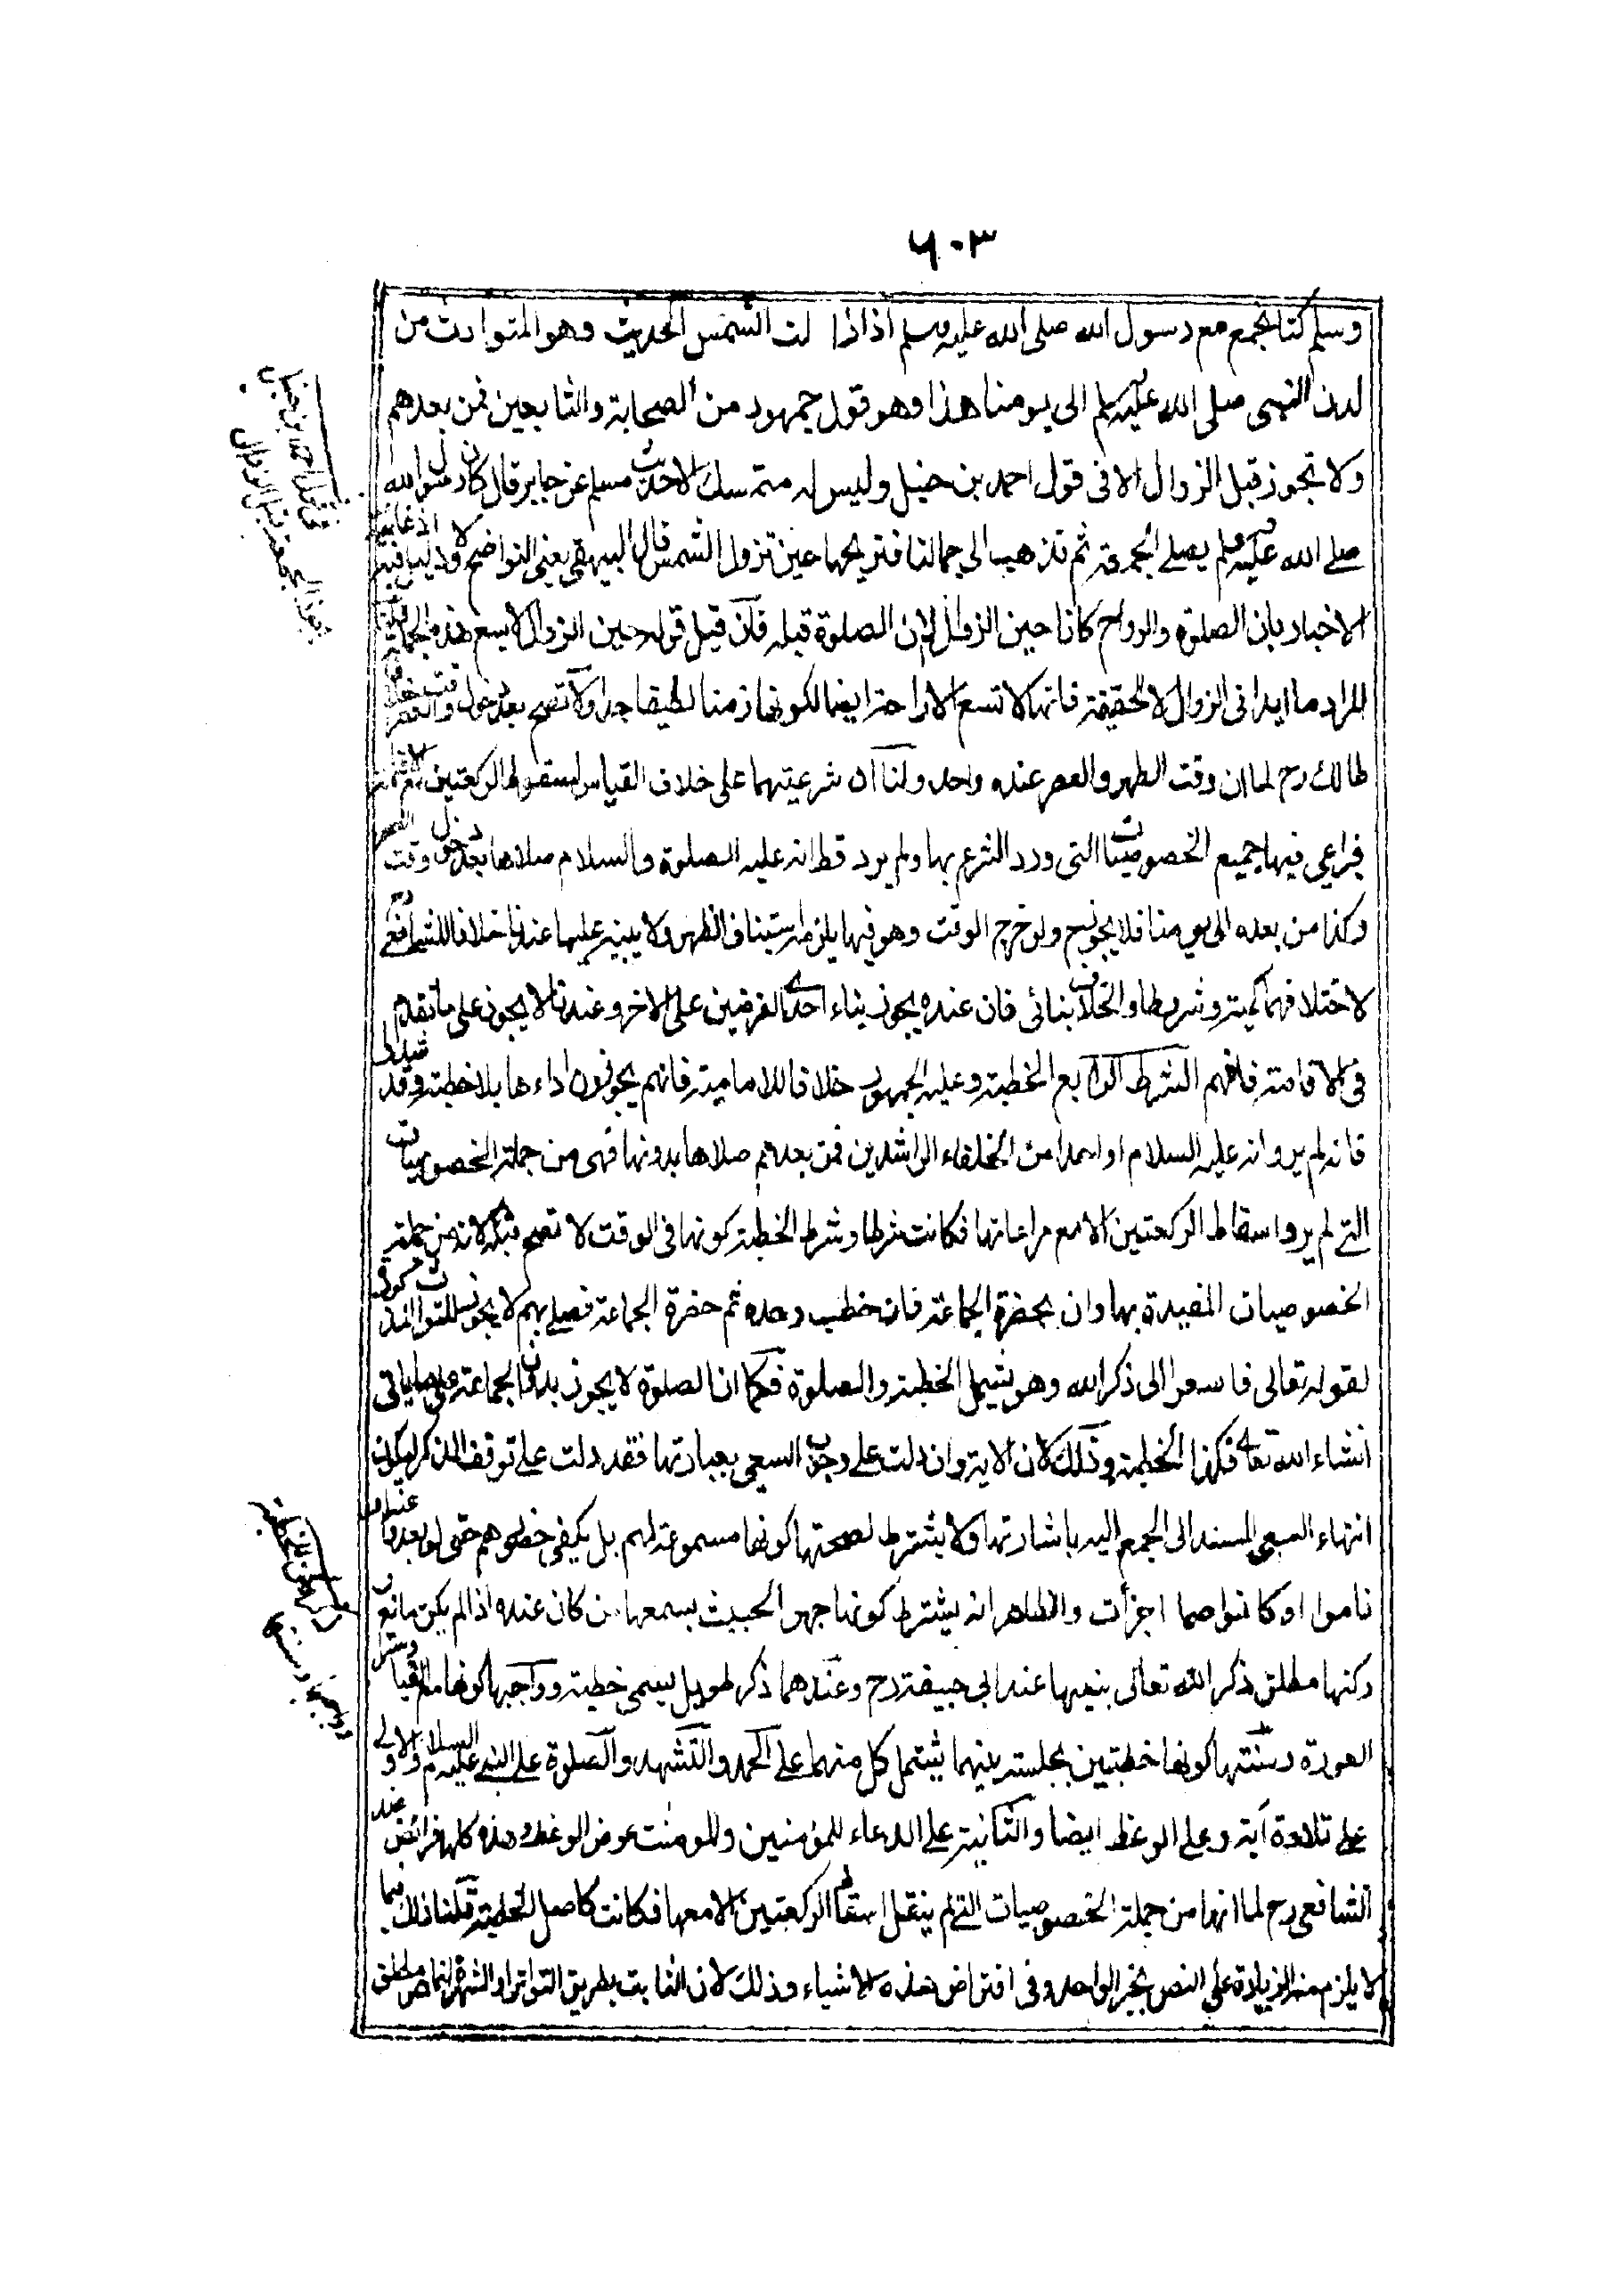 ٦٠٣
وسلم كنا نجمع مع رسول الله صلى الله عليه وسلم اذا زا لت الشمس الحديث وهو المتوارث من
لدن النبي صلى الله عليه وسلم الى يومنا هذا وهو قول جمهور من الصحابة والتابعين فمن بعدهم
ولا تجوز قبل الزوال الا في قول احمد بن حنبل وليس له متمسك الا حديث مسلم عن جابر قال كان رسول الله
صلے الله عليه وسلم يصلے الجمعة ثم نذهب الى جمالنا فنريحها حين تزول الشمس قال البيهقي يعني النواضح ولا دليل فيه اذ غايته
الاخبار بان الصلوة والرواح كانا حين الزوال لا ان الصلوة قبله فان قيل قوله حين الزوال لا يسع هذه الجملة
المراد ما يدانى الزوال لا الحقيقة فانها لا تسع الاراحة ايضا لكونها زمنا لطيفا جدا ولا تصح بعد دخول وقت العصر خلافا
لمالك رح لما ان وقت الظهر والعصر عنده واحد ولنا ان شرعيتها على خلاف القياس لسقوط الركعتين
فيراعى فيها جميع الخصوصيات التى ورد الشرع بها ولم يرد قط انه عليه الصلوة والسلام صلاها بعد دخول وقت العصر
وكذا من بعده الى يومنا فلا يجوز ولو خرج الوقت وهو فيها يلزمه استيناف الظهر ولا يبنيه عليها عندنا خلافا للشافعے رح
لاختلافهما كمية وشروطا والخلاف بنائى فان عنده يجوز بناء احدى الفرضين على الاخر وعندنا لا يجوز على ما تقدم
فى الاقامة فافهم الشرط الرابع الخطبة وعليه الجمهور خلافا للامامية فانهم يجوزون اداءها بلا خطبة وقد
فانه لم يرو انه عليه السلام او احدا من الخلفاء الراشدين فمن بعدهم صلاها بدونها فهى من جملة الخصوصيات
التے لم يرو اسقاط الركعتين الا مع مراعاتها فكانت شرطا وشرط الخطبة كونها فى الوقت لا تصح قبله لانه من جملة
الخصوصيات المقيدة بها وان بحضرة الجماعة فان خطب وحده ثم حضرة الجماعة فصلى بهم لا يجوز للتوارث المذكور
لقوله تعالى فاسعوا الى ذكر الله وهو يشمل الخطبة والصلوة فكما ان الصلوة لا يجوز بدون الجماعة على ما ياتى
انشاء الله تعالى فكذا الخطبة وذلك لان الاية وان دلت على وجوب السعي بعبارتها فقد دلت على توقف الذكر ليكون
انتهاء السعي المسند الى الجمع اليه باشارتها ولا يشترط لصحتها كونها مسموعة لهم بل يكفى حضورهم حتى لو بعدوا عنه او
ناموا او كانوا صما اجزأت والظاهر انه يشترط كونها جهرا بحيث يسمعها من كان عنده اذا لم يكن مانع
ركنها مطلق ذكر الله تعالى بنيتها عند ابى حنيفة رح وعندهما ذكر طويل يسمى خطبة وواجبها كونها مع القيام وستر
العورة وسنتها كونها خطبتين بجلسة بينهما يشتمل كل منهما على الحمد والتشهد والصلوة على النبي عليه السلام والاولے
على تلاوة آية وعلى الوعظ ايضا والثانية على الدعاء للمؤمنين وللمومنت عوض الوعظ وهذه كلها فرائض عند
الشافعى رح لما انها من جملة الخصوصيات التے لم ينقل اسقاط الركعتين الا معها فكانت كاصل الخطبة قلنا ذلك فيما
لا يلزم منه الزيادة على النص بخبر الواحد وفى افتراض هذه الاشياء وذلك لان الثابت بطريق التواتر او الشهرة انما هو مطلق